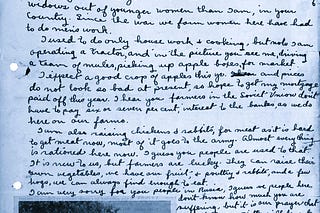 widows out of younger women than I am, in your
country. Since the war we farm women here have had
to do men's work.
I used to do only house work & cooking, but now I am
operating a tractor, and in the picture you see me, driving
a team of mules, picking up apple boxes, for market
I expect a good crop of apples this yr. and prices
do not look so bad at present, so hope to get my mortgage
paid off this year. I hear you farmers in the Soviet Union don't
have to pay six or seven per cent, interest to the banks, as we do
here on our farms.
I am also raising chickens & rabbits, for meat as it is hard
to get meat now, most of it goes to the army. Almost everything
is rationed here now. I guess you people are used to that
It is new to us, but farmers are lucky. They can raise their
own vegetables, we have our fruit & poultry & rabbits, and a few
hogs, we can always find enough to eat.
I am very sorry for you people in Russia, I guess we people here,
don't know how much you are
suffering, but it is our prayer that